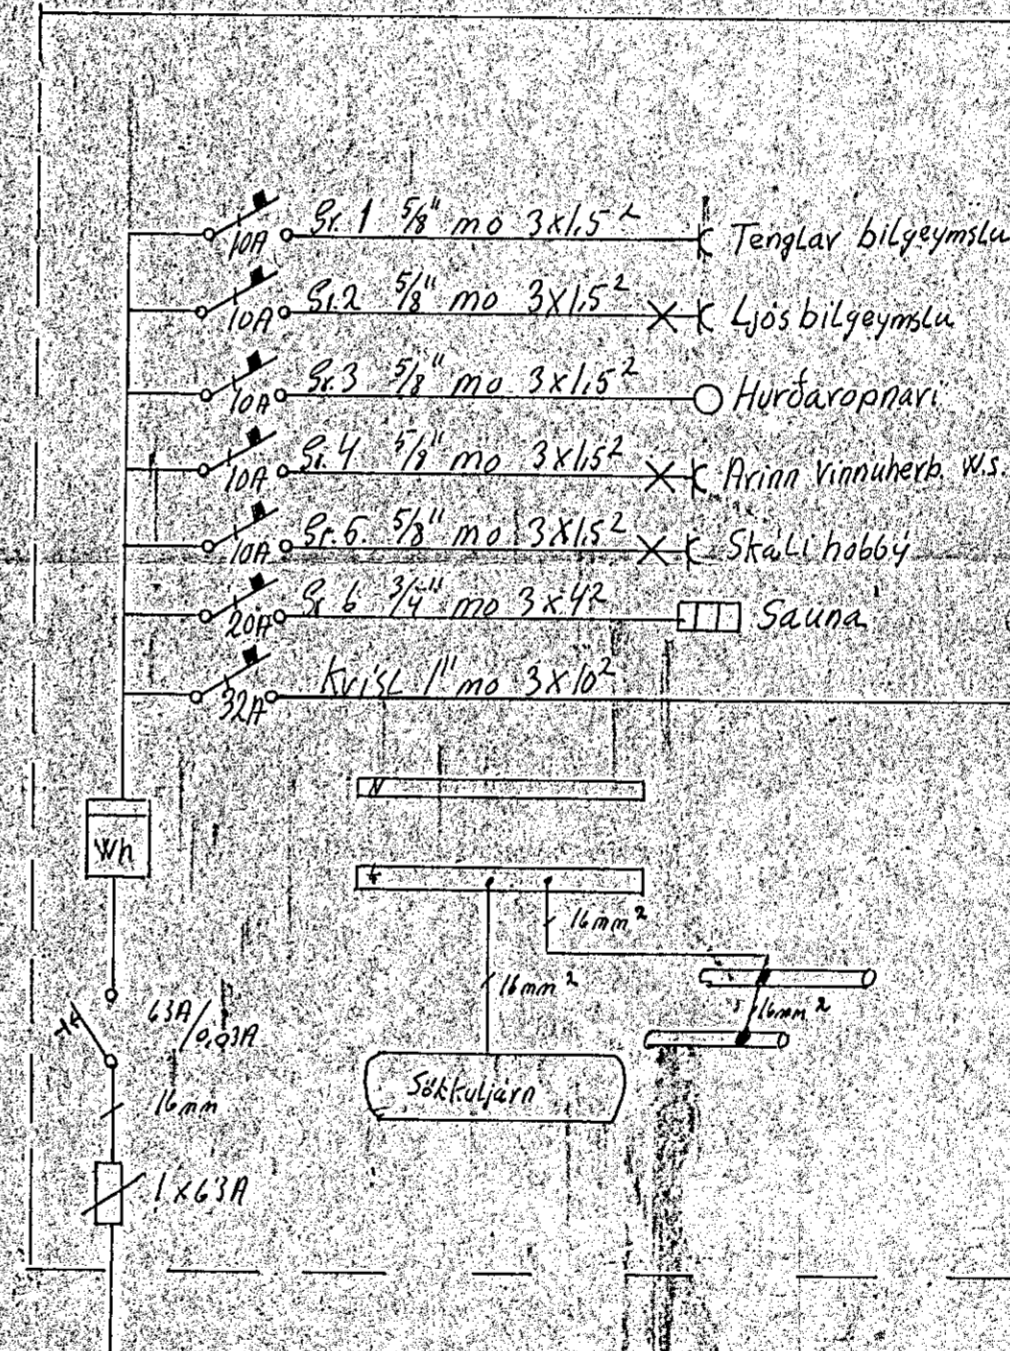 Gr. 1 5/8" mo 3x1,5² Tenglar bílgeymslu
10A
Gr. 2 5/8" mo 3x1,5² Ljós bílgeymslu
10A
Gr. 3 5/8" mo 3x1,5² Hurðaropnari
10A
Gr. 4 5/8" mo 3x1,5² Arinn Vinnuherb. W.s.
10A
Gr. 5 5/8" mo 3x1,5² Skáli hobbý
10A
Gr 6 3/4" mo 3x4² Sauna
20A
Kvísl 1" mo 3x10²
32A
N
Wh
16mm²
16mm²
16mm²
63A/0,03A
Sökkuljárn
16mm
1x63A